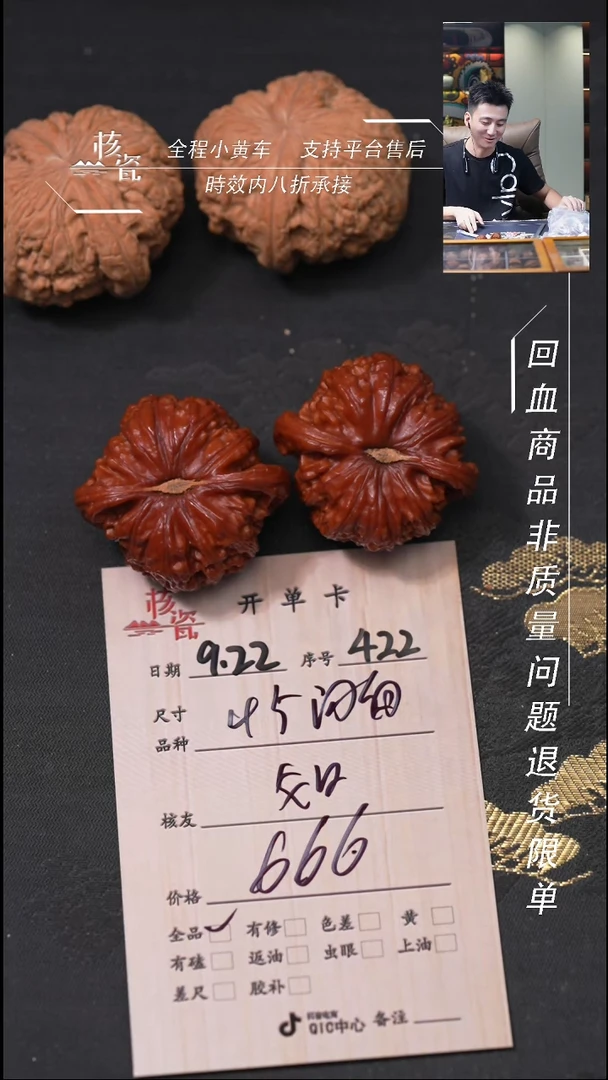 核瓷
全程小黄车 支持平台售后
時效内八折承接
回血商品非质量问题退货限单
核瓷
开单卡
日期 9.22 序号 422
尺寸
品种
45
核友
价格 666
全品 有修 色差 黄
有磕 返油 虫眼 上油
差尺 胶补
抖音电商
QIC中心 备注